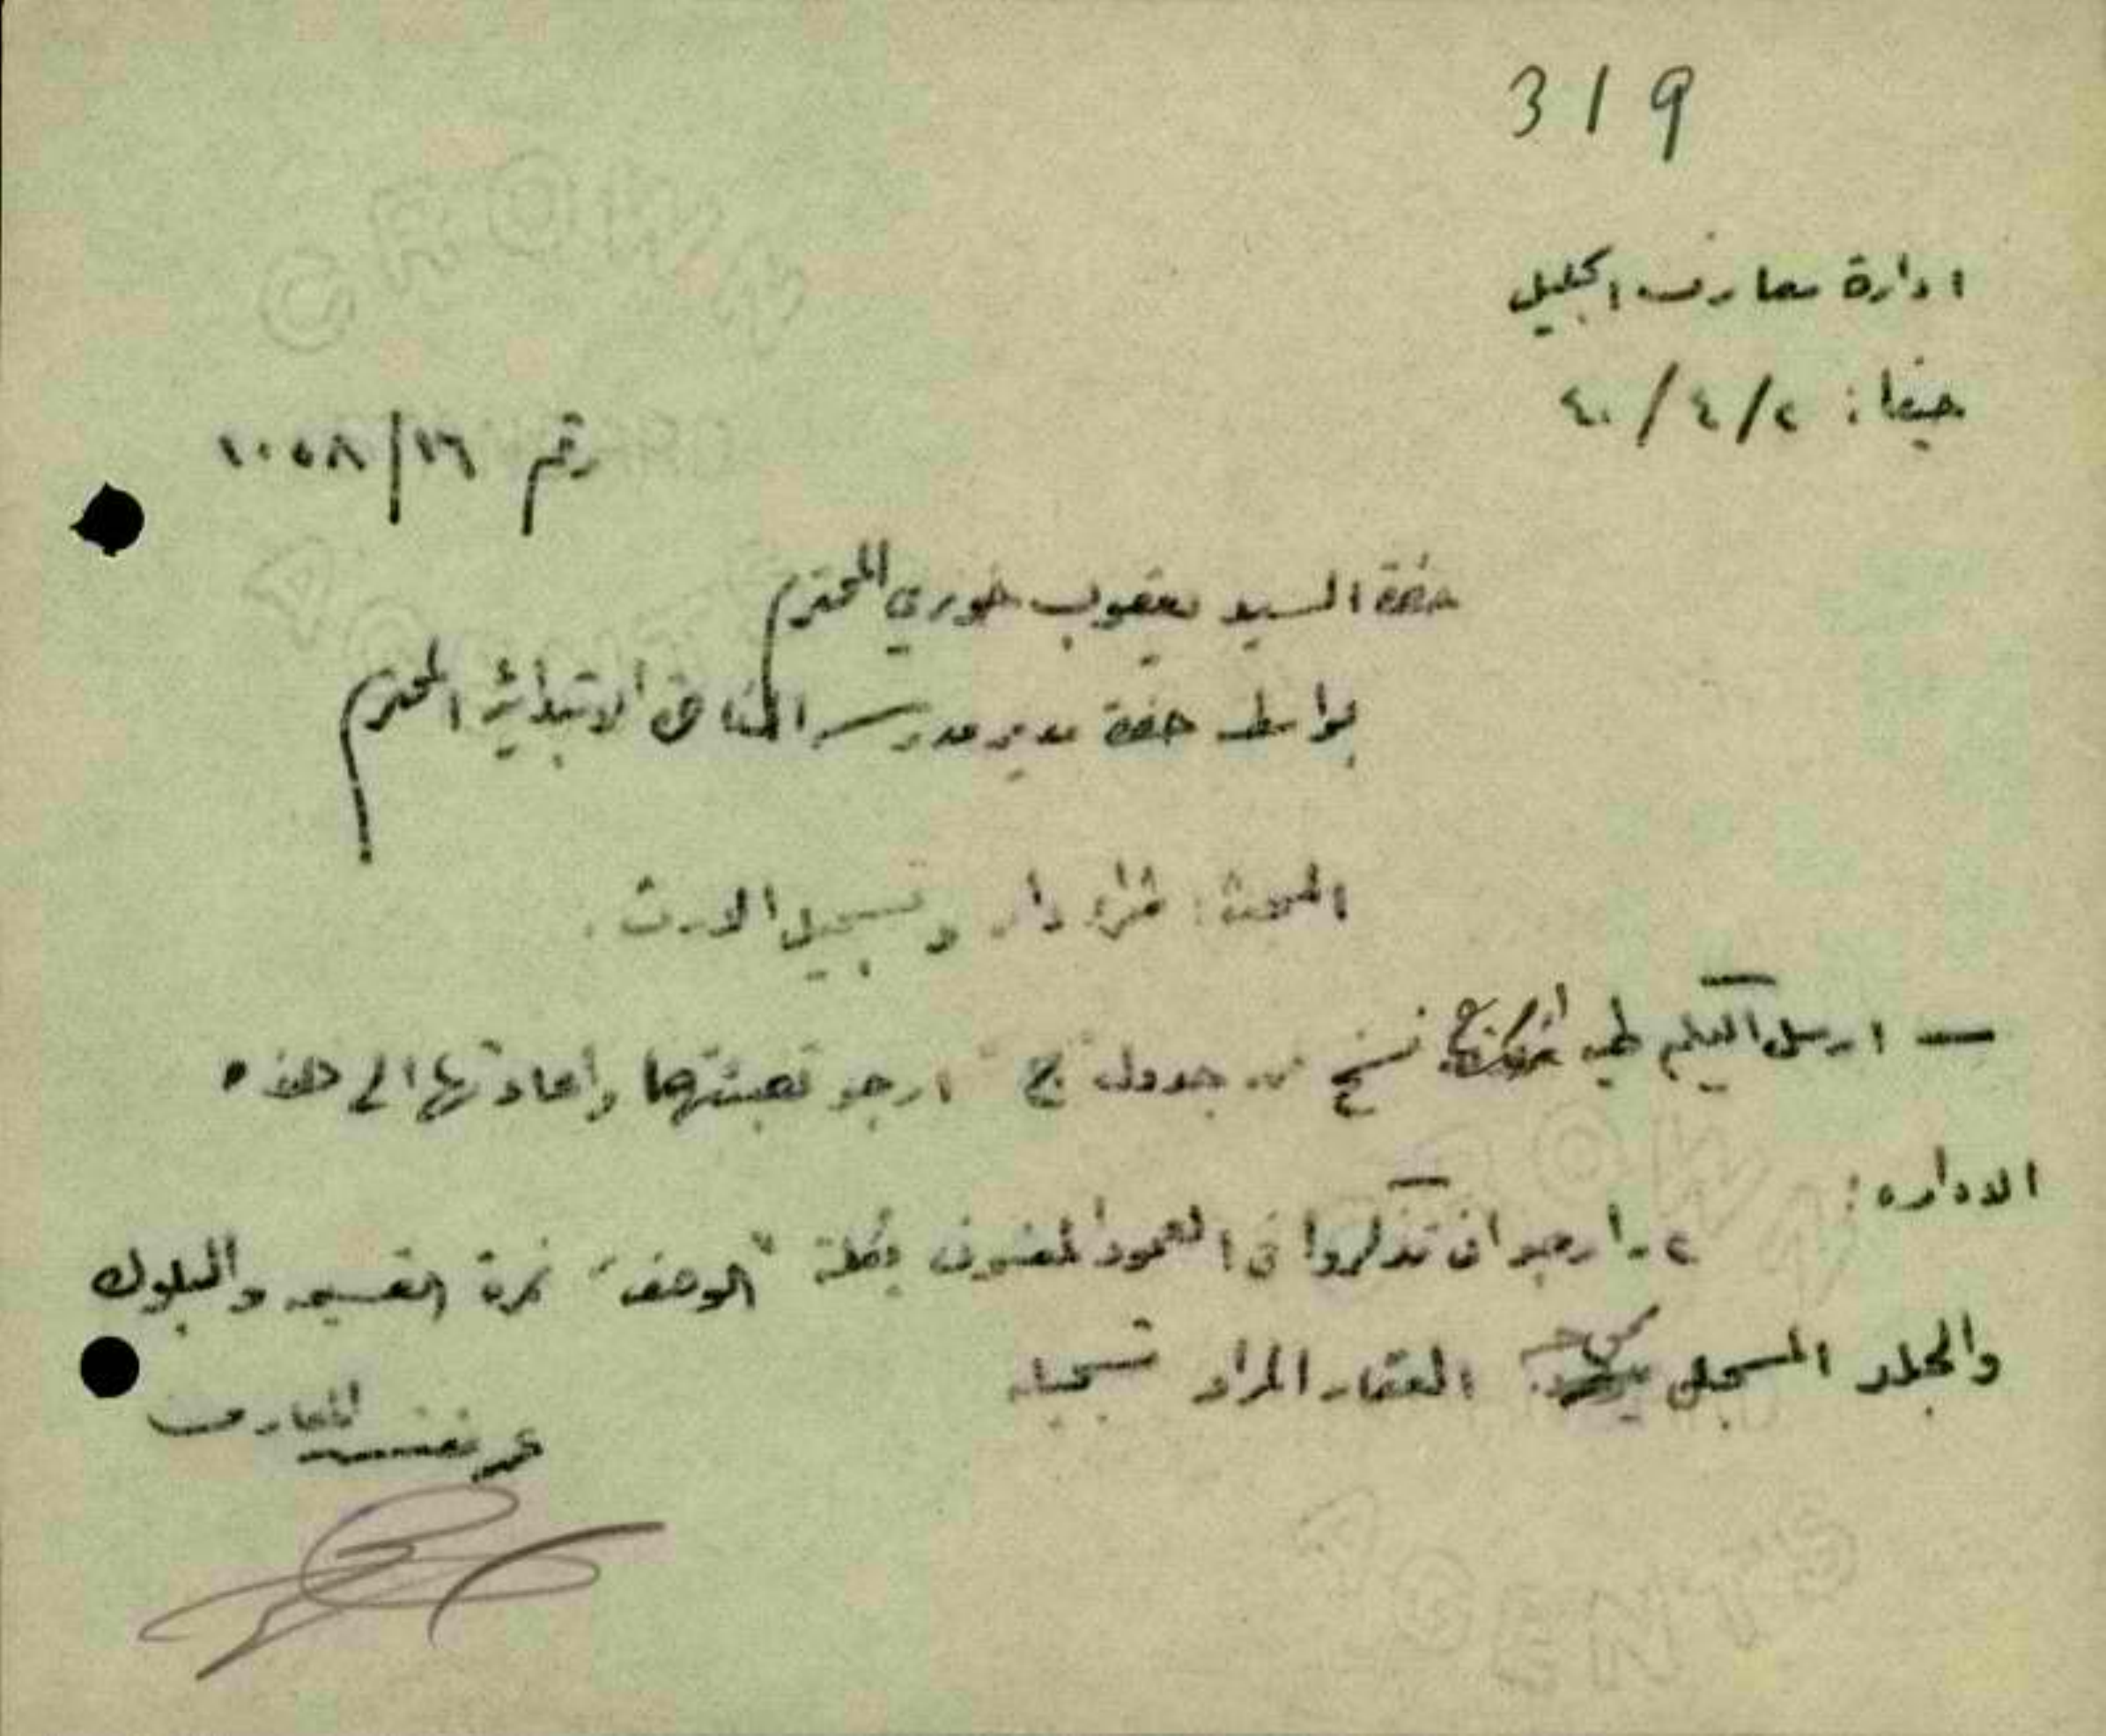 319
ادارة معارف الجليل
حيفا: ٢/٤/٤٠
رقم ١٦/١٠٥٨
حضرة السيد يعقوب خوري المحترم
بواسطة حضرة مدير مدرسة الابتدائية المحترم
المبحث: شراء دار وتسجيل الارث.
— ارسل اليكم طيه نسخ من جدول "ج" ارجو تعبئتها واعادتها الى هذه
الاداره:
٢- ارجو ان تذكروا في العمود المعنون بكلمة "الوصف" نمرة القسيمه والبلوك
والمجلد المسجل العقار المراد تسجيله
عن مفتش المعارف
CROWN
AGENTS
CROWN
AGENTS